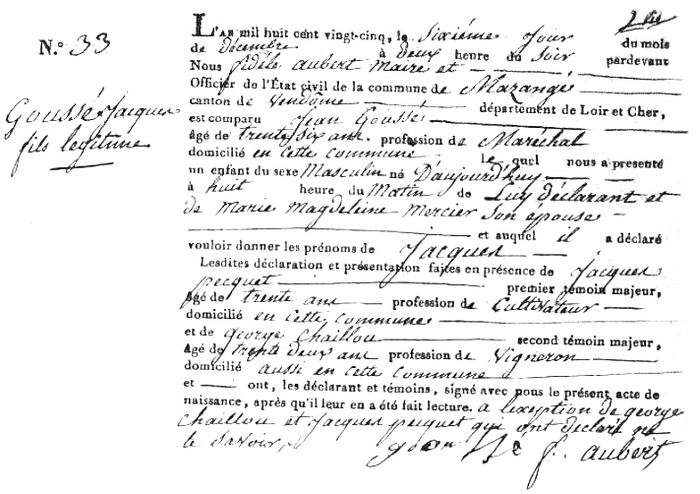 N.° 33
Goussé Jacques
fils legitime
L'AN mil huit cent vingt-cinq, le Sixiéme Jour du mois
de décembre à deux heure du Soir pardevant
Nous fidèle aubert Maire et
Officier de l'État civil de la commune de Mazangé
canton de Vendôme département de Loir et Cher,
est comparu Jean Goussé
âgé de trente six ans profession de Maréchal
domicilié en cette commune le quel nous a présenté
un enfant du sexe Masculin né D'aujourd'huy
à huit heure du Matin de Luy déclarant et
de Marie Magdeleine Mercier Son epouse
et auquel il a déclaré
vouloir donner les prénoms de Jacques
Lesdites déclaration et présentation faites en présence de Jacques
pecquet premier témoin majeur,
âgé de trente ans profession de Cultivateur
domicilié en cette commune
et de george Chaillou second témoin majeur,
âgé de trente deux ans profession de Vigneron
domicilié aussi en cette commune
et ont, les déclarant et témoins, signé avec nous le présent acte de
naissance, après qu'il leur en a été fait lecture. a l'exeption de george
Chaillou et Jacques pecquet qui ont declaré ne
le Savoir,
f. aubert